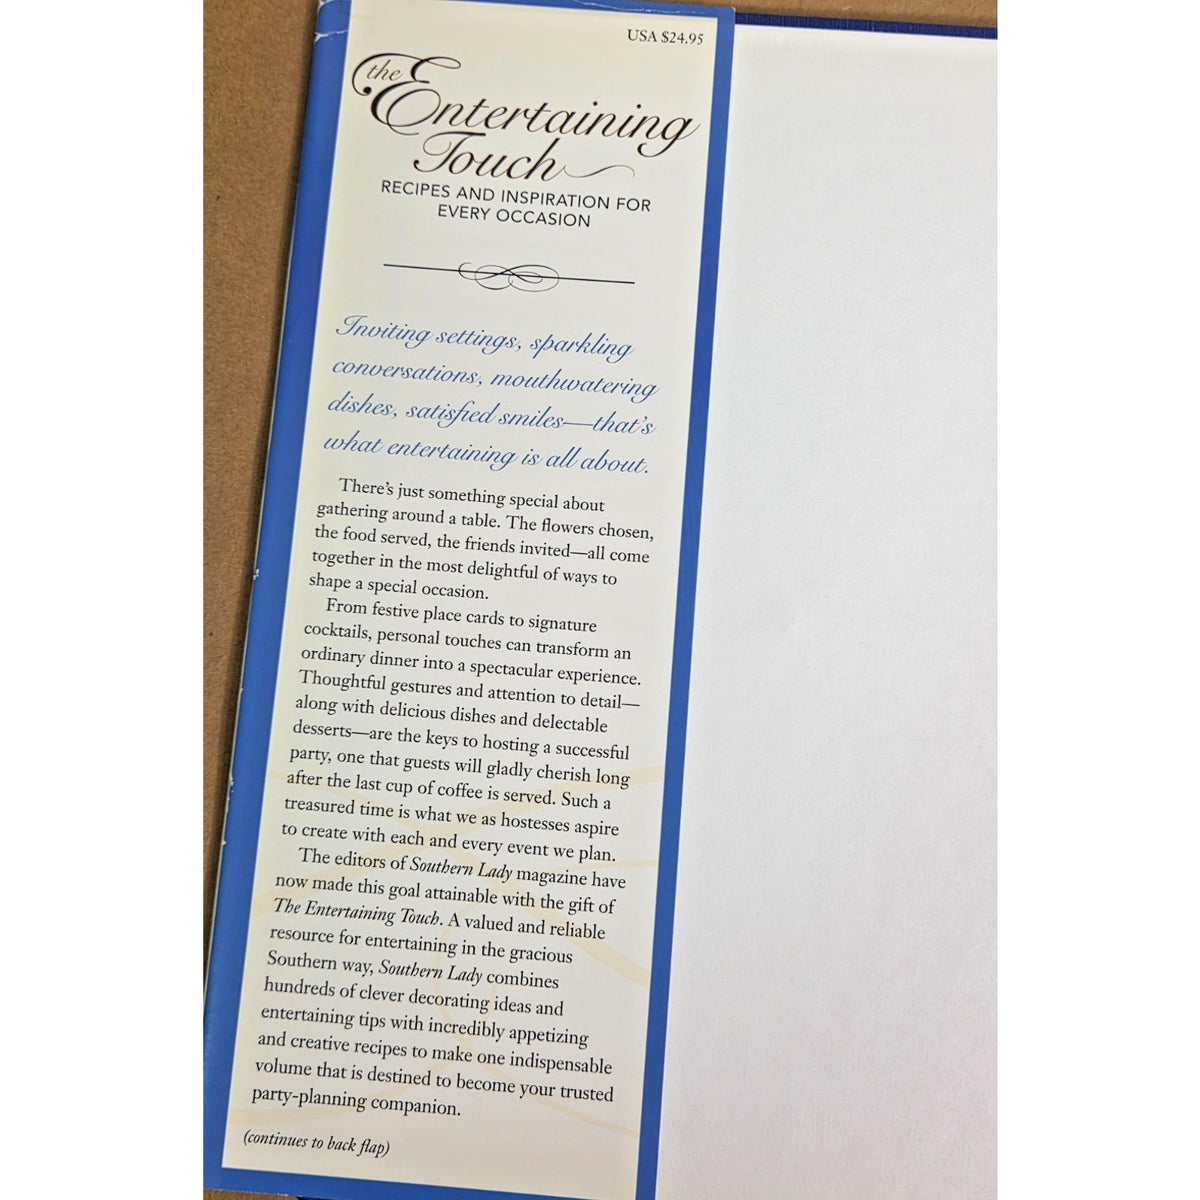 USA $24.95
the
Entertaining
Touch
RECIPES AND INSPIRATION FOR
EVERY OCCASION
Inviting settings, sparkling
conversations, mouthwatering
dishes, satisfied smiles—that's
what entertaining is all about.
There's just something special about
gathering around a table. The flowers chosen,
the food served, the friends invited—all come
together in the most delightful of ways to
shape a special occasion.
From festive place cards to signature
cocktails, personal touches can transform an
ordinary dinner into a spectacular experience.
Thoughtful gestures and attention to detail—
along with delicious dishes and delectable
desserts—are the keys to hosting a successful
party, one that guests will gladly cherish long
after the last cup of coffee is served. Such a
treasured time is what we as hostesses aspire
to create with each and every event we plan.
The editors of Southern Lady magazine have
now made this goal attainable with the gift of
The Entertaining Touch. A valued and reliable
resource for entertaining in the gracious
Southern way, Southern Lady combines
hundreds of clever decorating ideas and
entertaining tips with incredibly appetizing
and creative recipes to make one indispensable
volume that is destined to become your trusted
party-planning companion.
(continues to back flap)